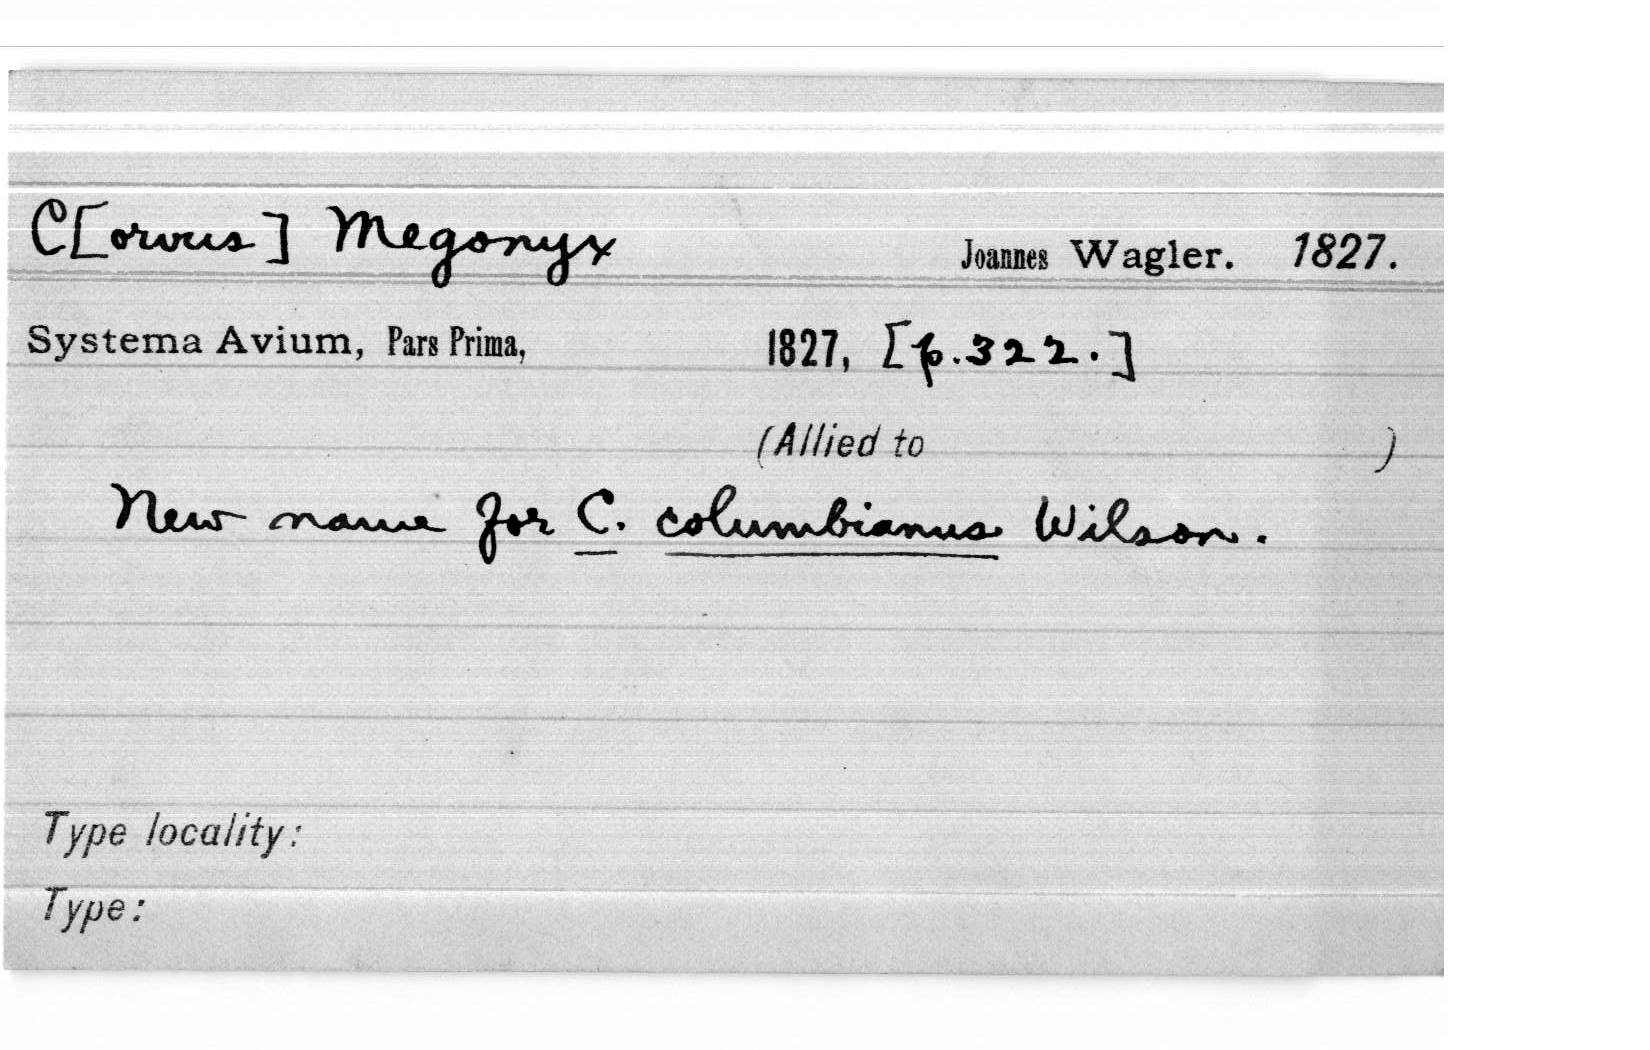 C[orvus] Megonyx Joannes Wagler. 1827.
Systema Avium, Pars Prima, 1827, [p.322.]
(Allied to )
New name for C. columbianus Wilson.
Type locality:
Type: